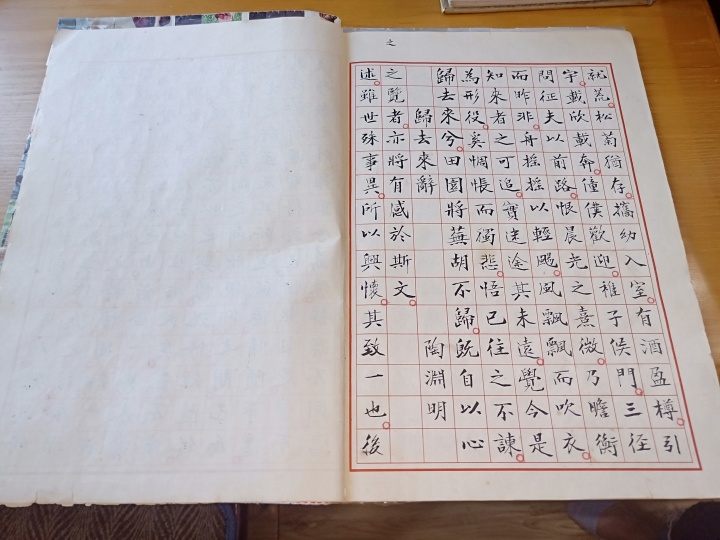 之
述雖世殊事異所以興懷其致一也後
之覽者亦將有感於斯文
歸去來辭 陶淵明
歸去來兮田園將蕪胡不歸既自以心
為形役奚惆悵而獨悲悟已往之不諫
知來者之可追實迷途其未遠覺今是
而昨非舟搖搖以輕颺風飄飄而吹衣
問征夫以前路恨晨光之熹微乃瞻衡
宇載欣載奔僮僕歡迎稚子候門三徑
就荒松菊猶存攜幼入室有酒盈樽引